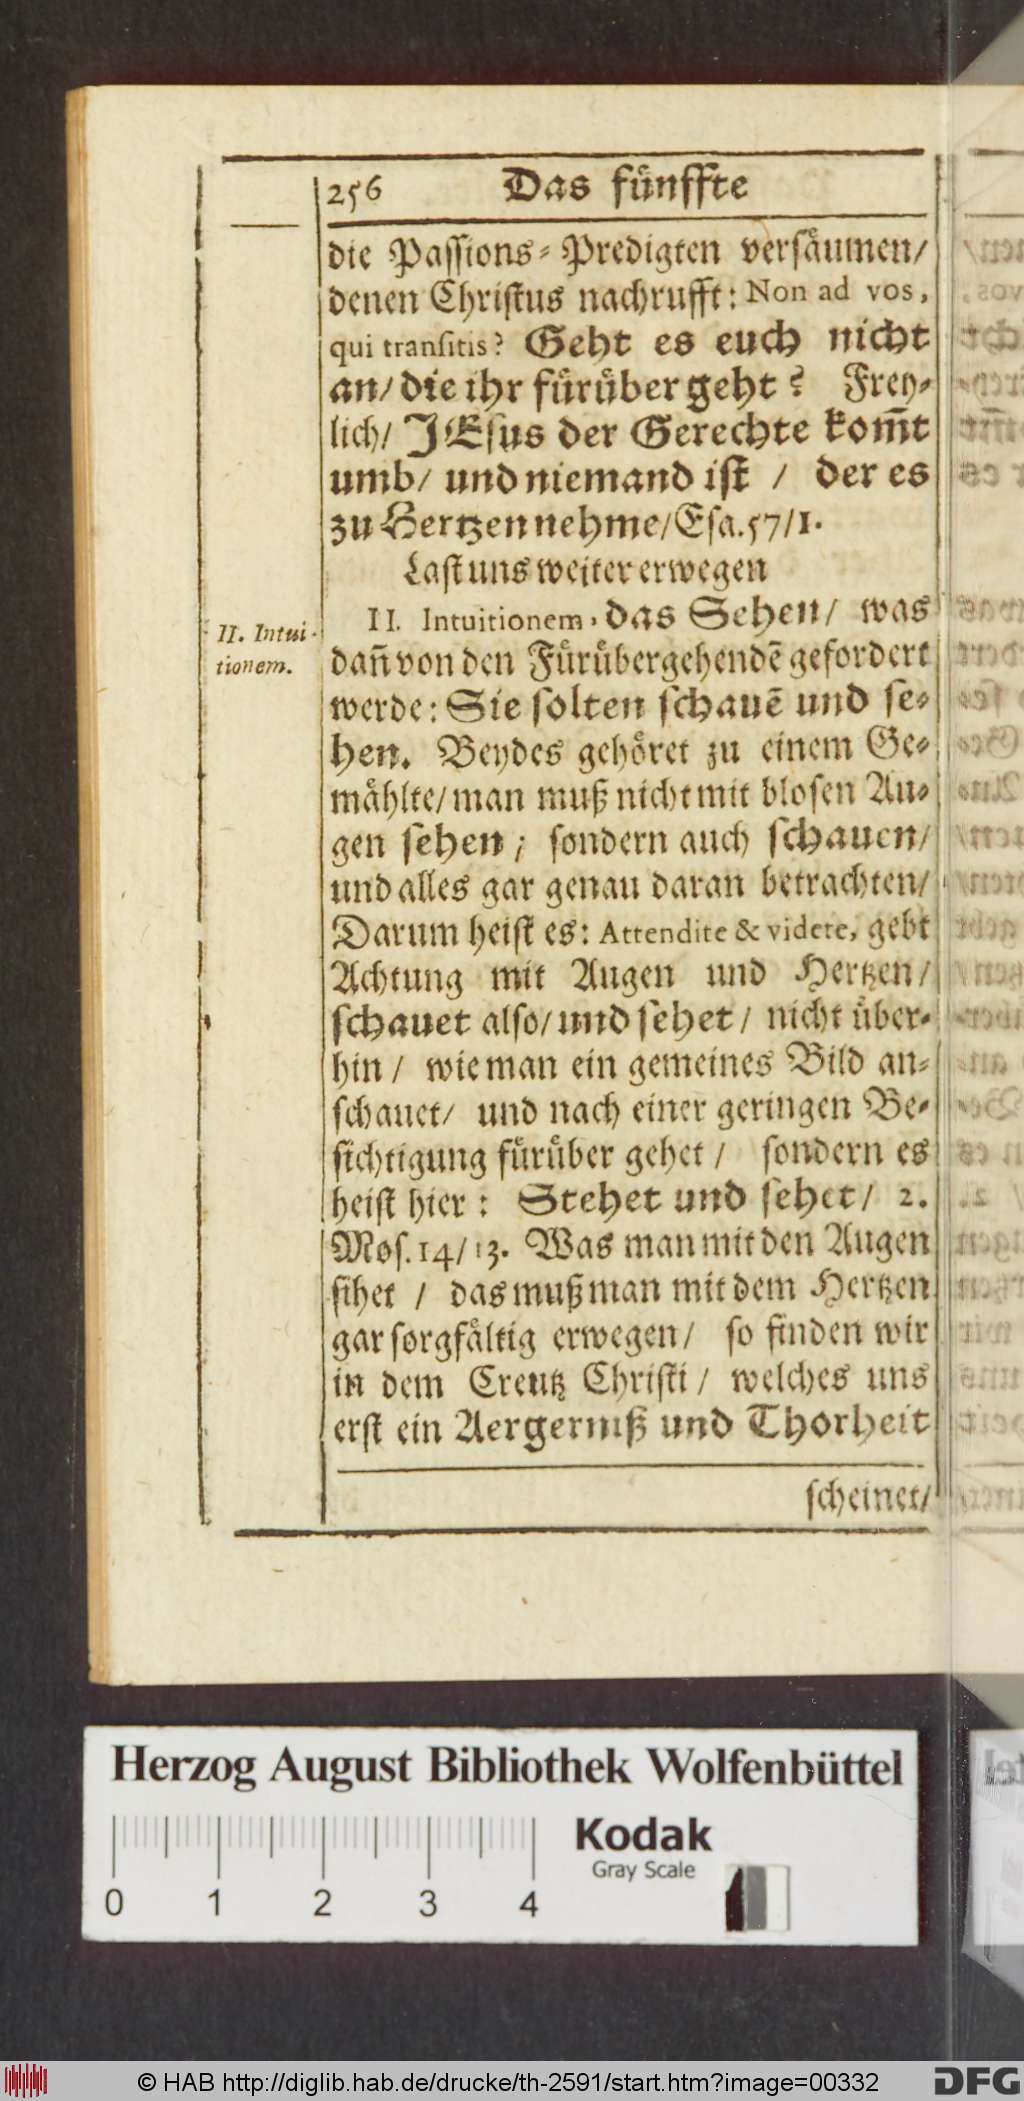 256 Das fuͤnffte
die Passions-Predigten versaͤumen/
denen Christus nachrufft: Non ad vos,
qui transitis? Geht es euch nicht
an/ die ihr fuͤruͤber geht? Frey-
lich/ JEsus der Gerechte kom̃t
umb/ und niemand ist / der es
zu Hertzen nehme/ Esa. 57/1.
Last uns weiter erwegen
II. Intuitionem, das Sehen/ was
II. Intui-
tionem.
dañ von den Fuͤruͤbergehendẽ gefordert
werde: Sie solten schauẽ und se-
hen. Beydes gehoͤret zu einem Ge-
maͤhlte/ man muß nicht mit blosen Au-
gen sehen; sondern auch schauen/
und alles gar genau daran betrachten/
Darum heist es: Attendite & videte, gebt
Achtung mit Augen und Hertzen/
schauet also/ und sehet/ nicht uͤber-
hin / wie man ein gemeines Bild an-
schauet/ und nach einer geringen Be-
sichtigung fuͤruͤber gehet / sondern es
heist hier: Stehet und sehet/ 2.
Mos. 14/13. Was man mit den Augen
sihet / das muß man mit dem Hertzen
gar sorgfaͤltig erwegen/ so finden wir
in dem Creutz Christi / welches uns
erst ein Aergerniß und Thorheit
scheinet/
Herzog August Bibliothek Wolfenbüttel
Kodak
Gray Scale
0 1 2 3 4
© HAB http://diglib.hab.de/drucke/th-2591/start.htm?image=00332
DFG